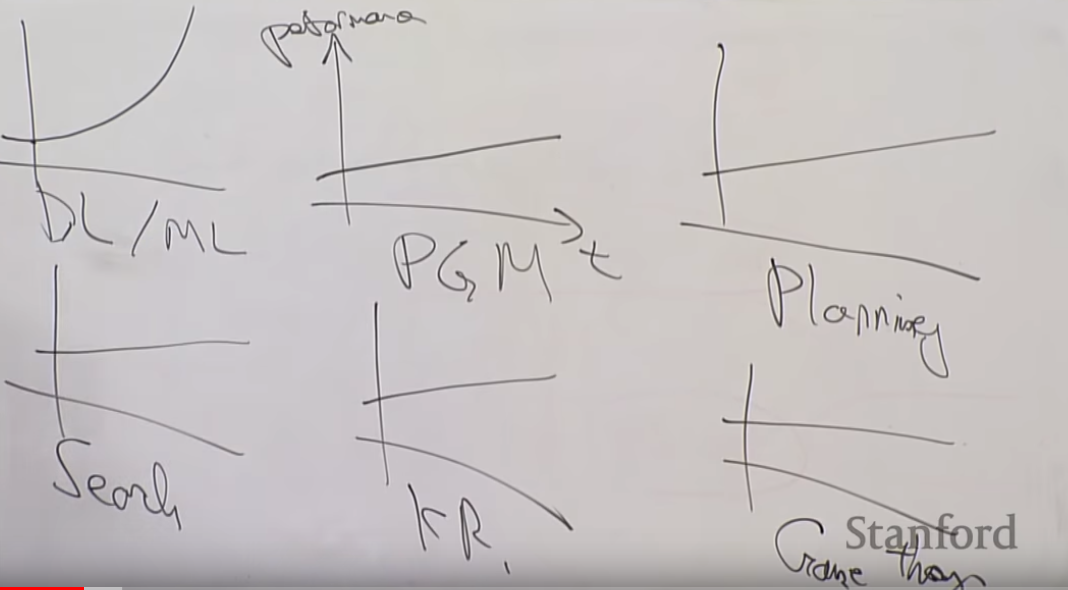 performance
DL/ML
PGM
t
Planning
Search
KR
Game theory
Stanford